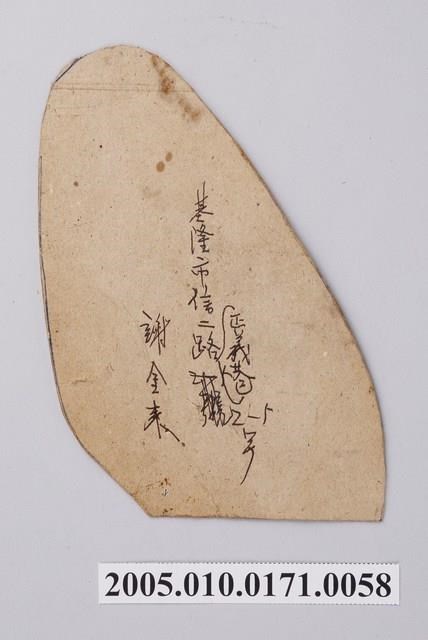 基隆市信二路
正義巷2-1号
謝金表
2005.010.0171.0058